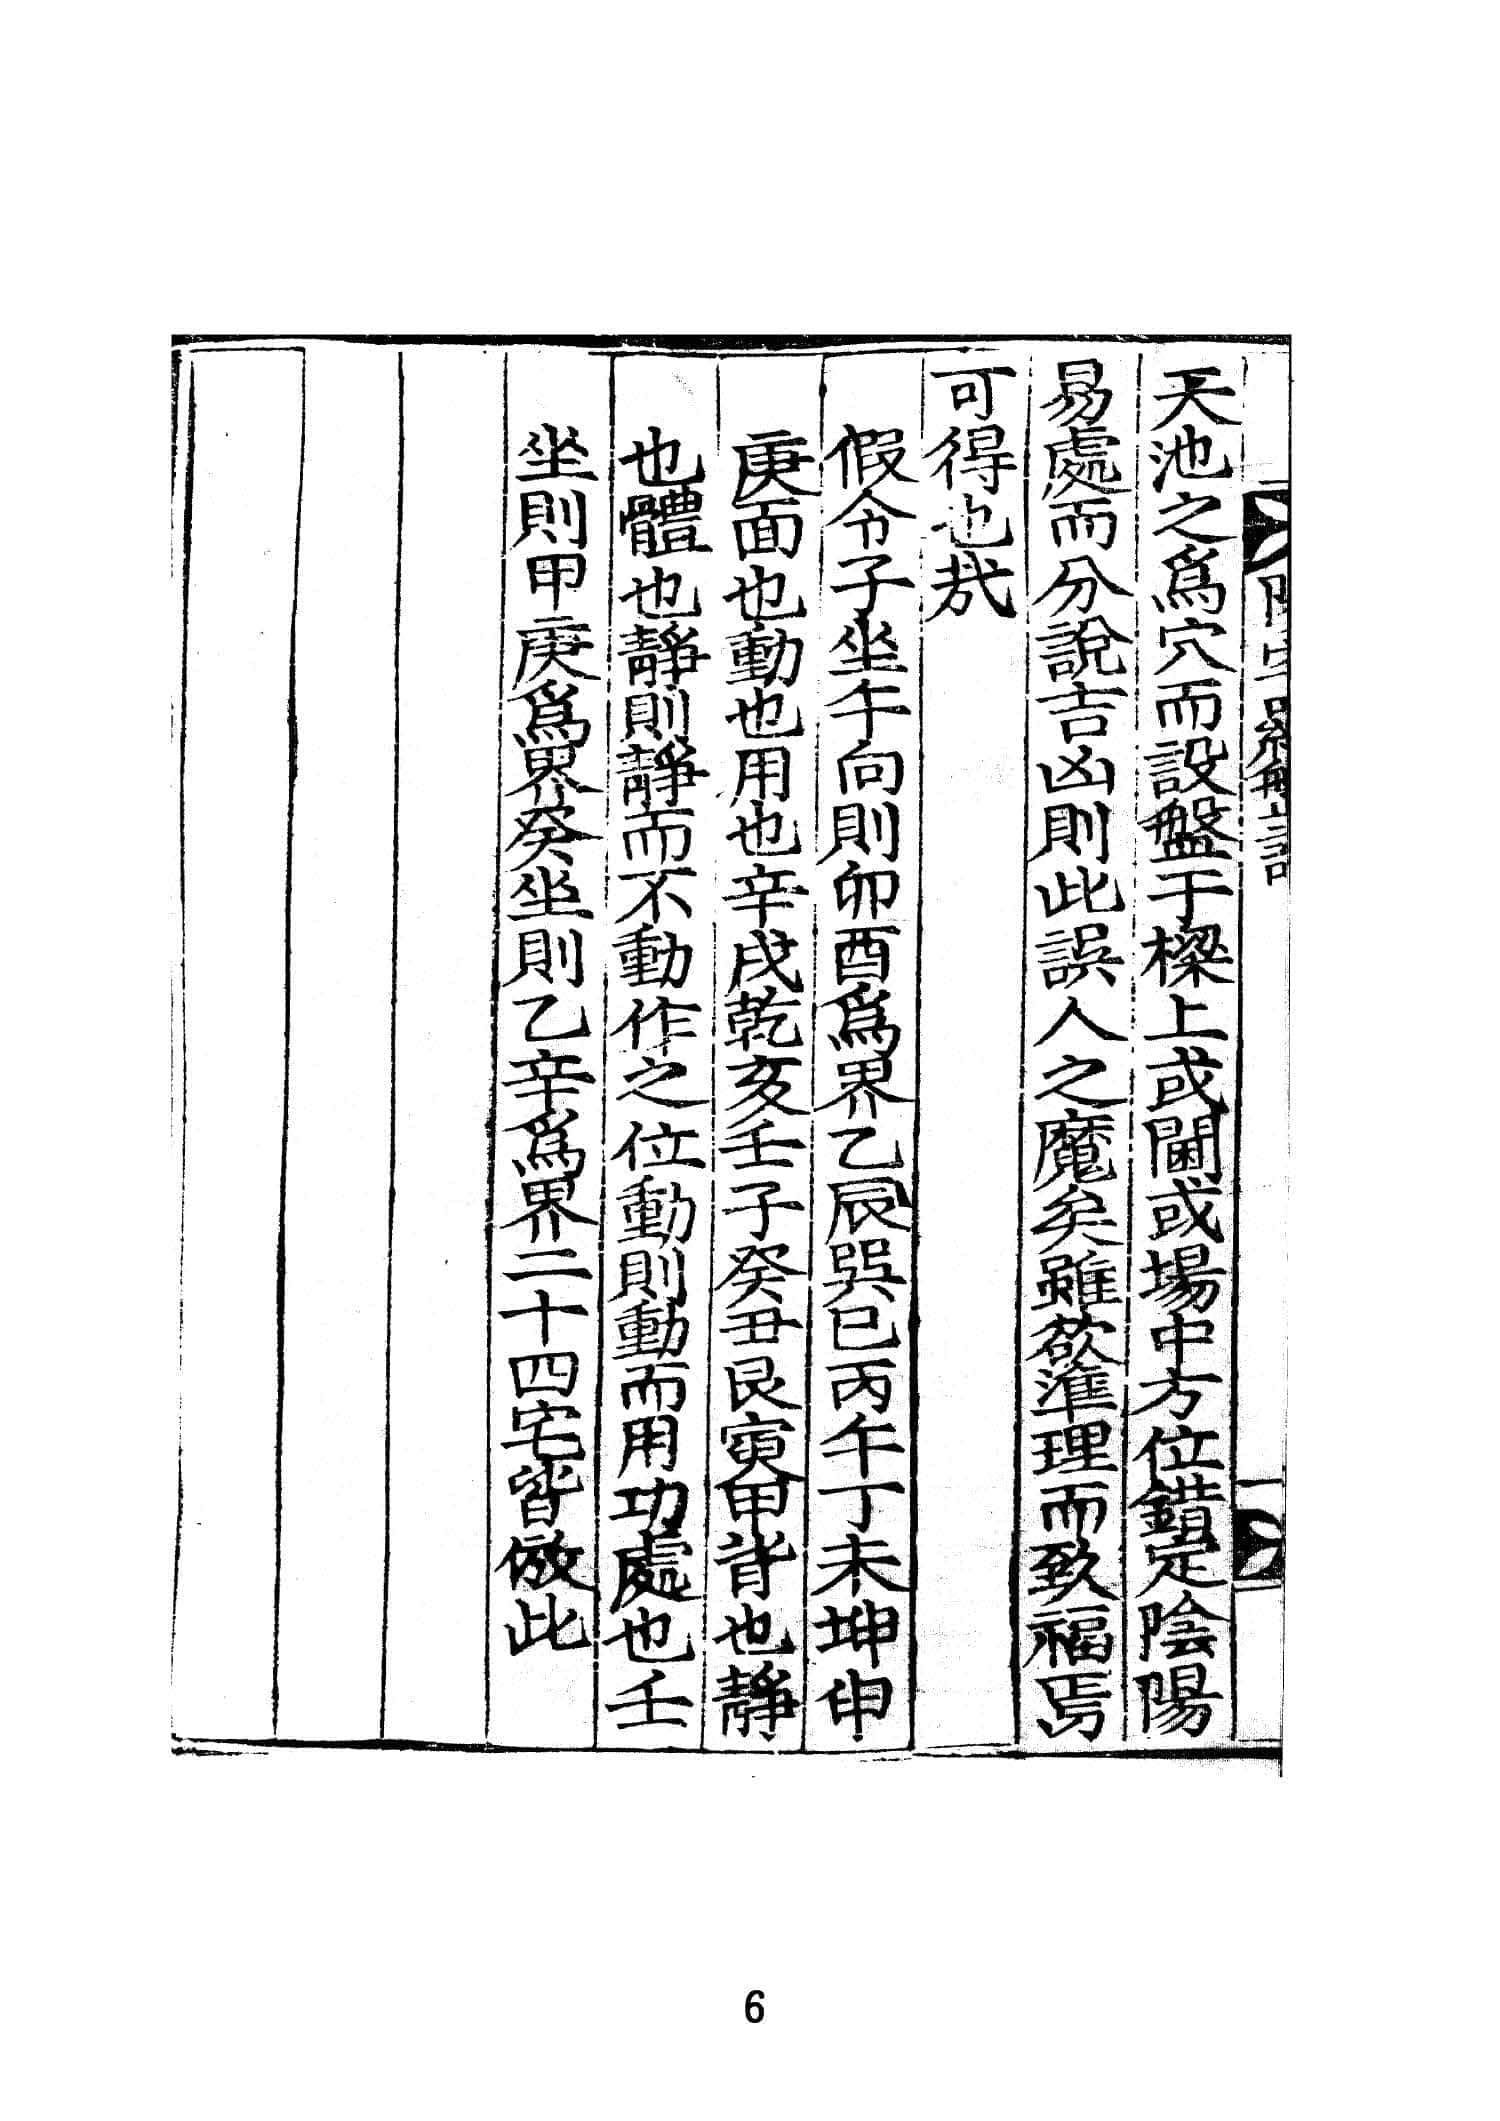 天池之爲穴而設盤于樑上或閫或場中方位錯定陰陽
易處而分說吉凶則此誤人之魔矣雖欲準理而致福焉
可得也哉
假令子坐午向則卯酉爲界乙辰巽巳丙午丁未坤申
庚面也動也用也辛戌乾亥壬子癸丑艮寅甲背也靜
也體也靜則靜而不動作之位動則動而用功處也壬
坐則甲庚爲界癸坐則乙辛爲界二十四宅皆倣此
6